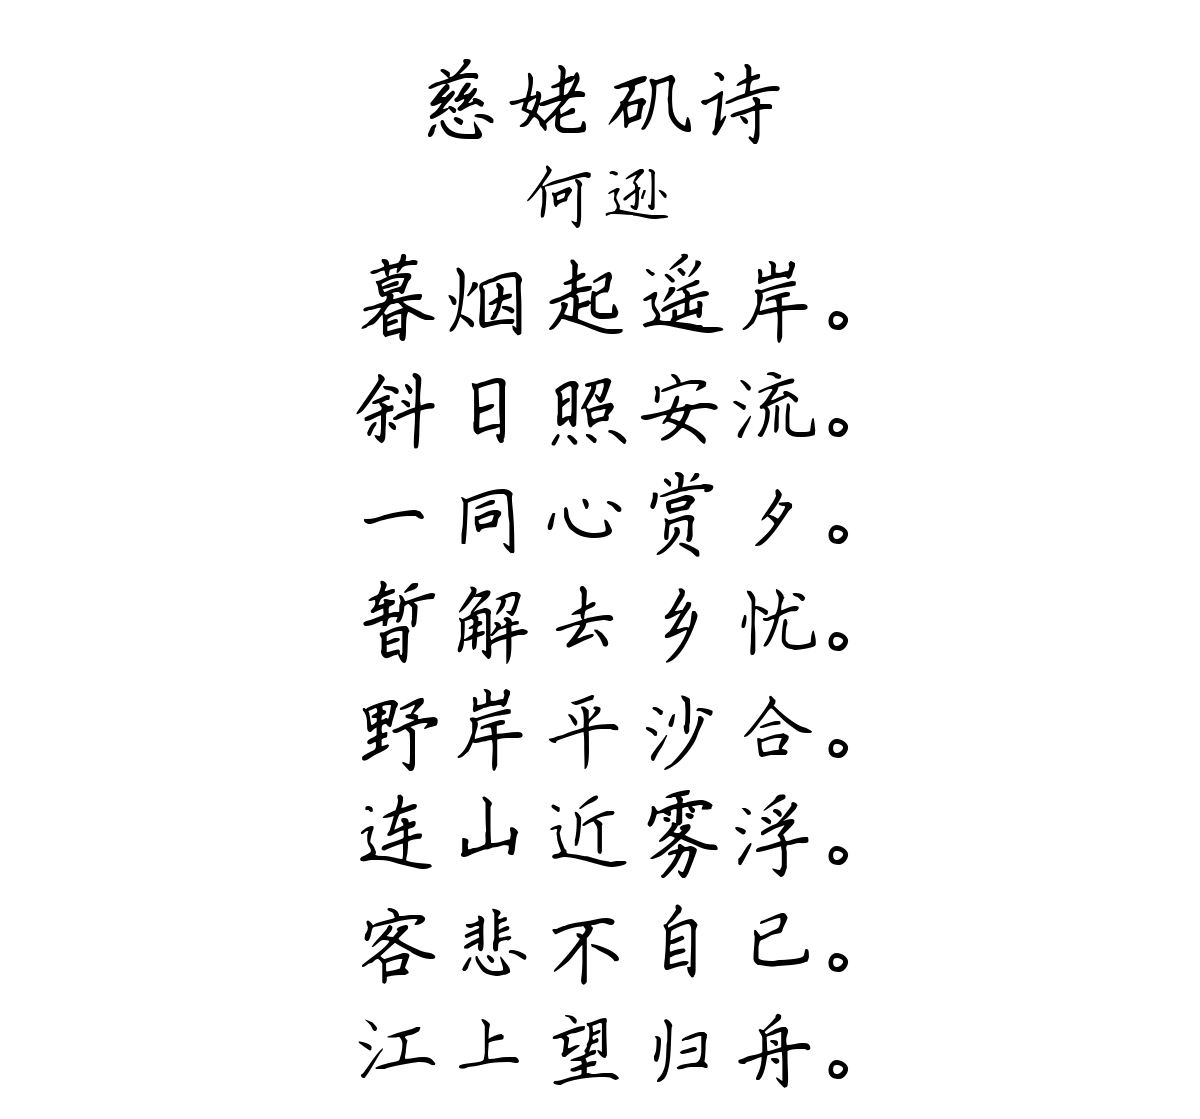 慈姥矶诗
何逊
暮烟起遥岸。
斜日照安流。
一同心赏夕。
暂解去乡忧。
野岸平沙合。
连山近雾浮。
客悲不自已。
江上望归舟。